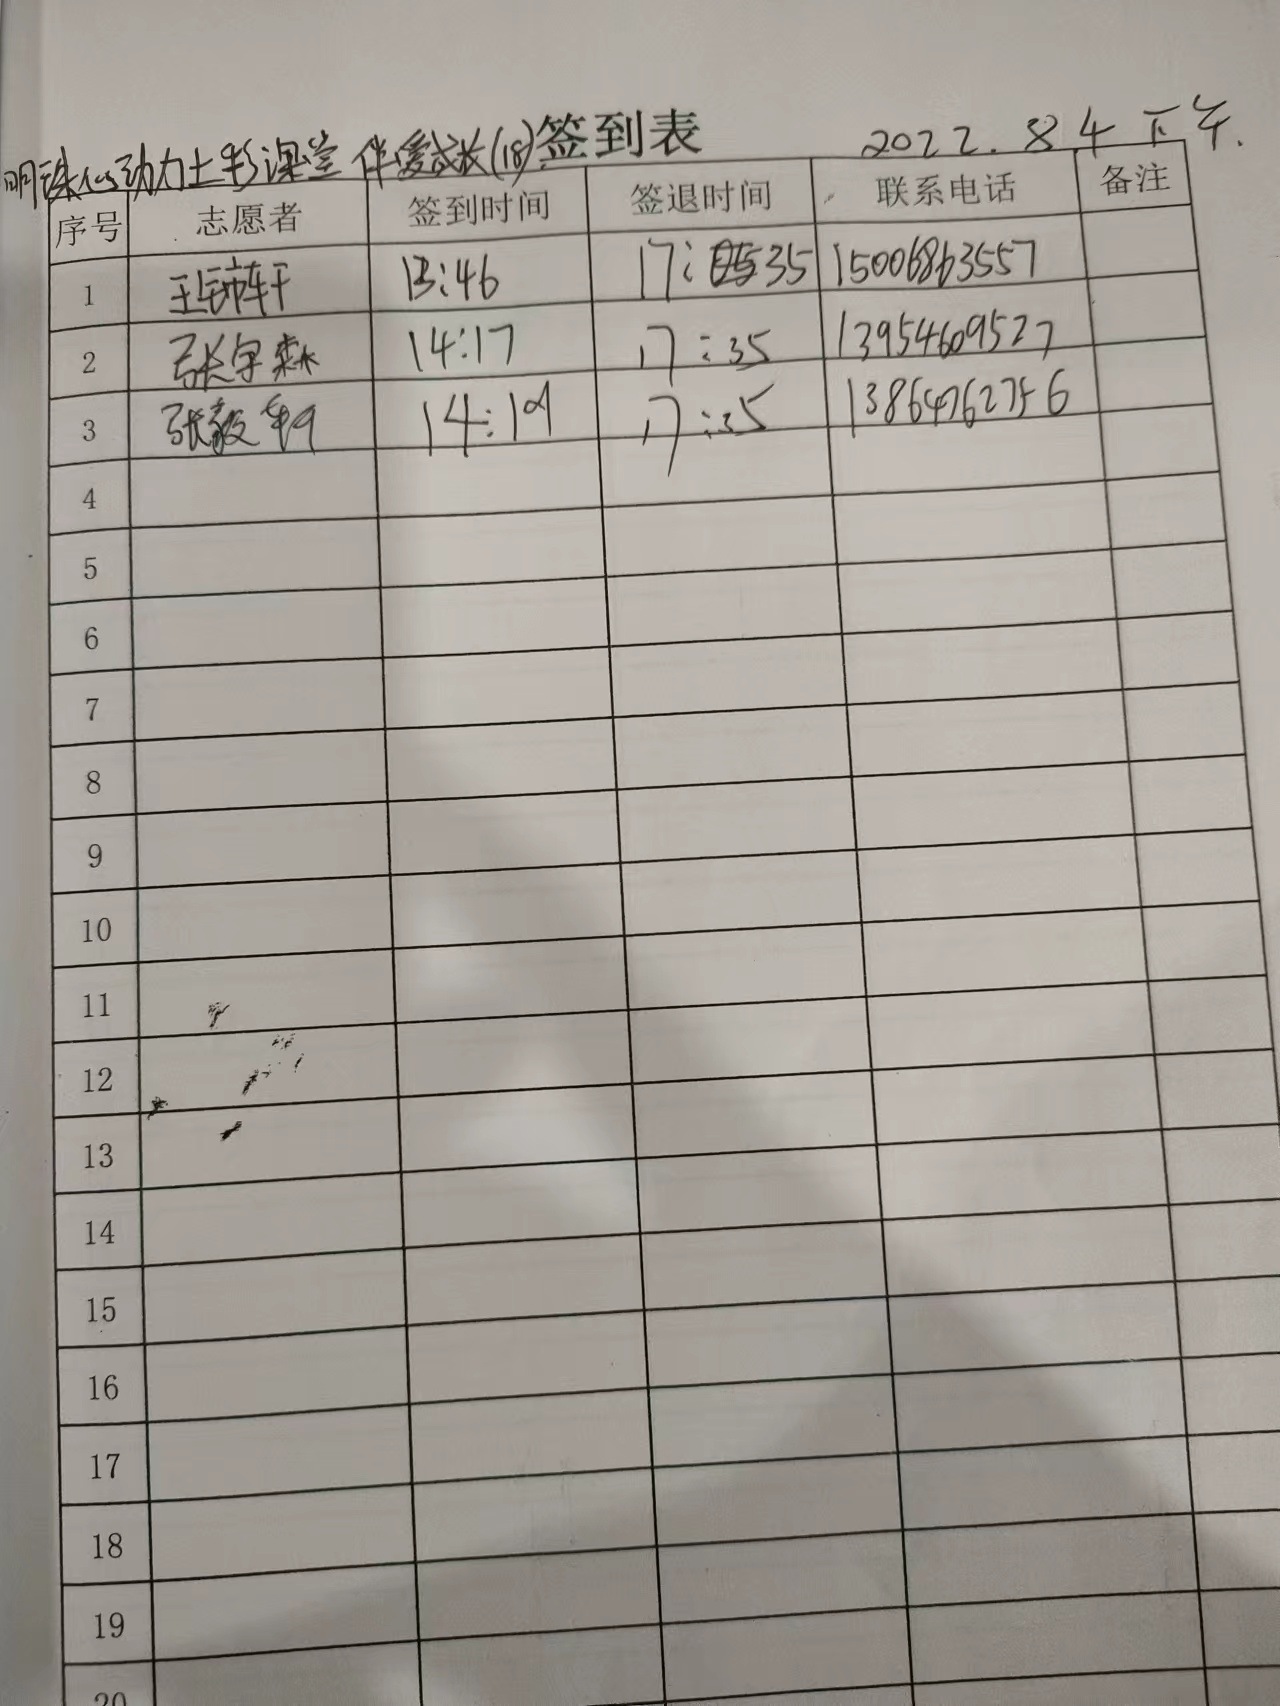 明珠心动力七彩课堂 伴爱成长(18)签到表 2022.8.4 下午.
序号 志愿者 签到时间 签退时间 联系电话 备注
1 王 轩 13:46 17:35 15006863557
2 张宇森 14:17 17:35 13954609527
3 张毅 14:19 17:35 13864762756
4
5
6
7
8
9
10
11
12
13
14
15
16
17
18
19
20